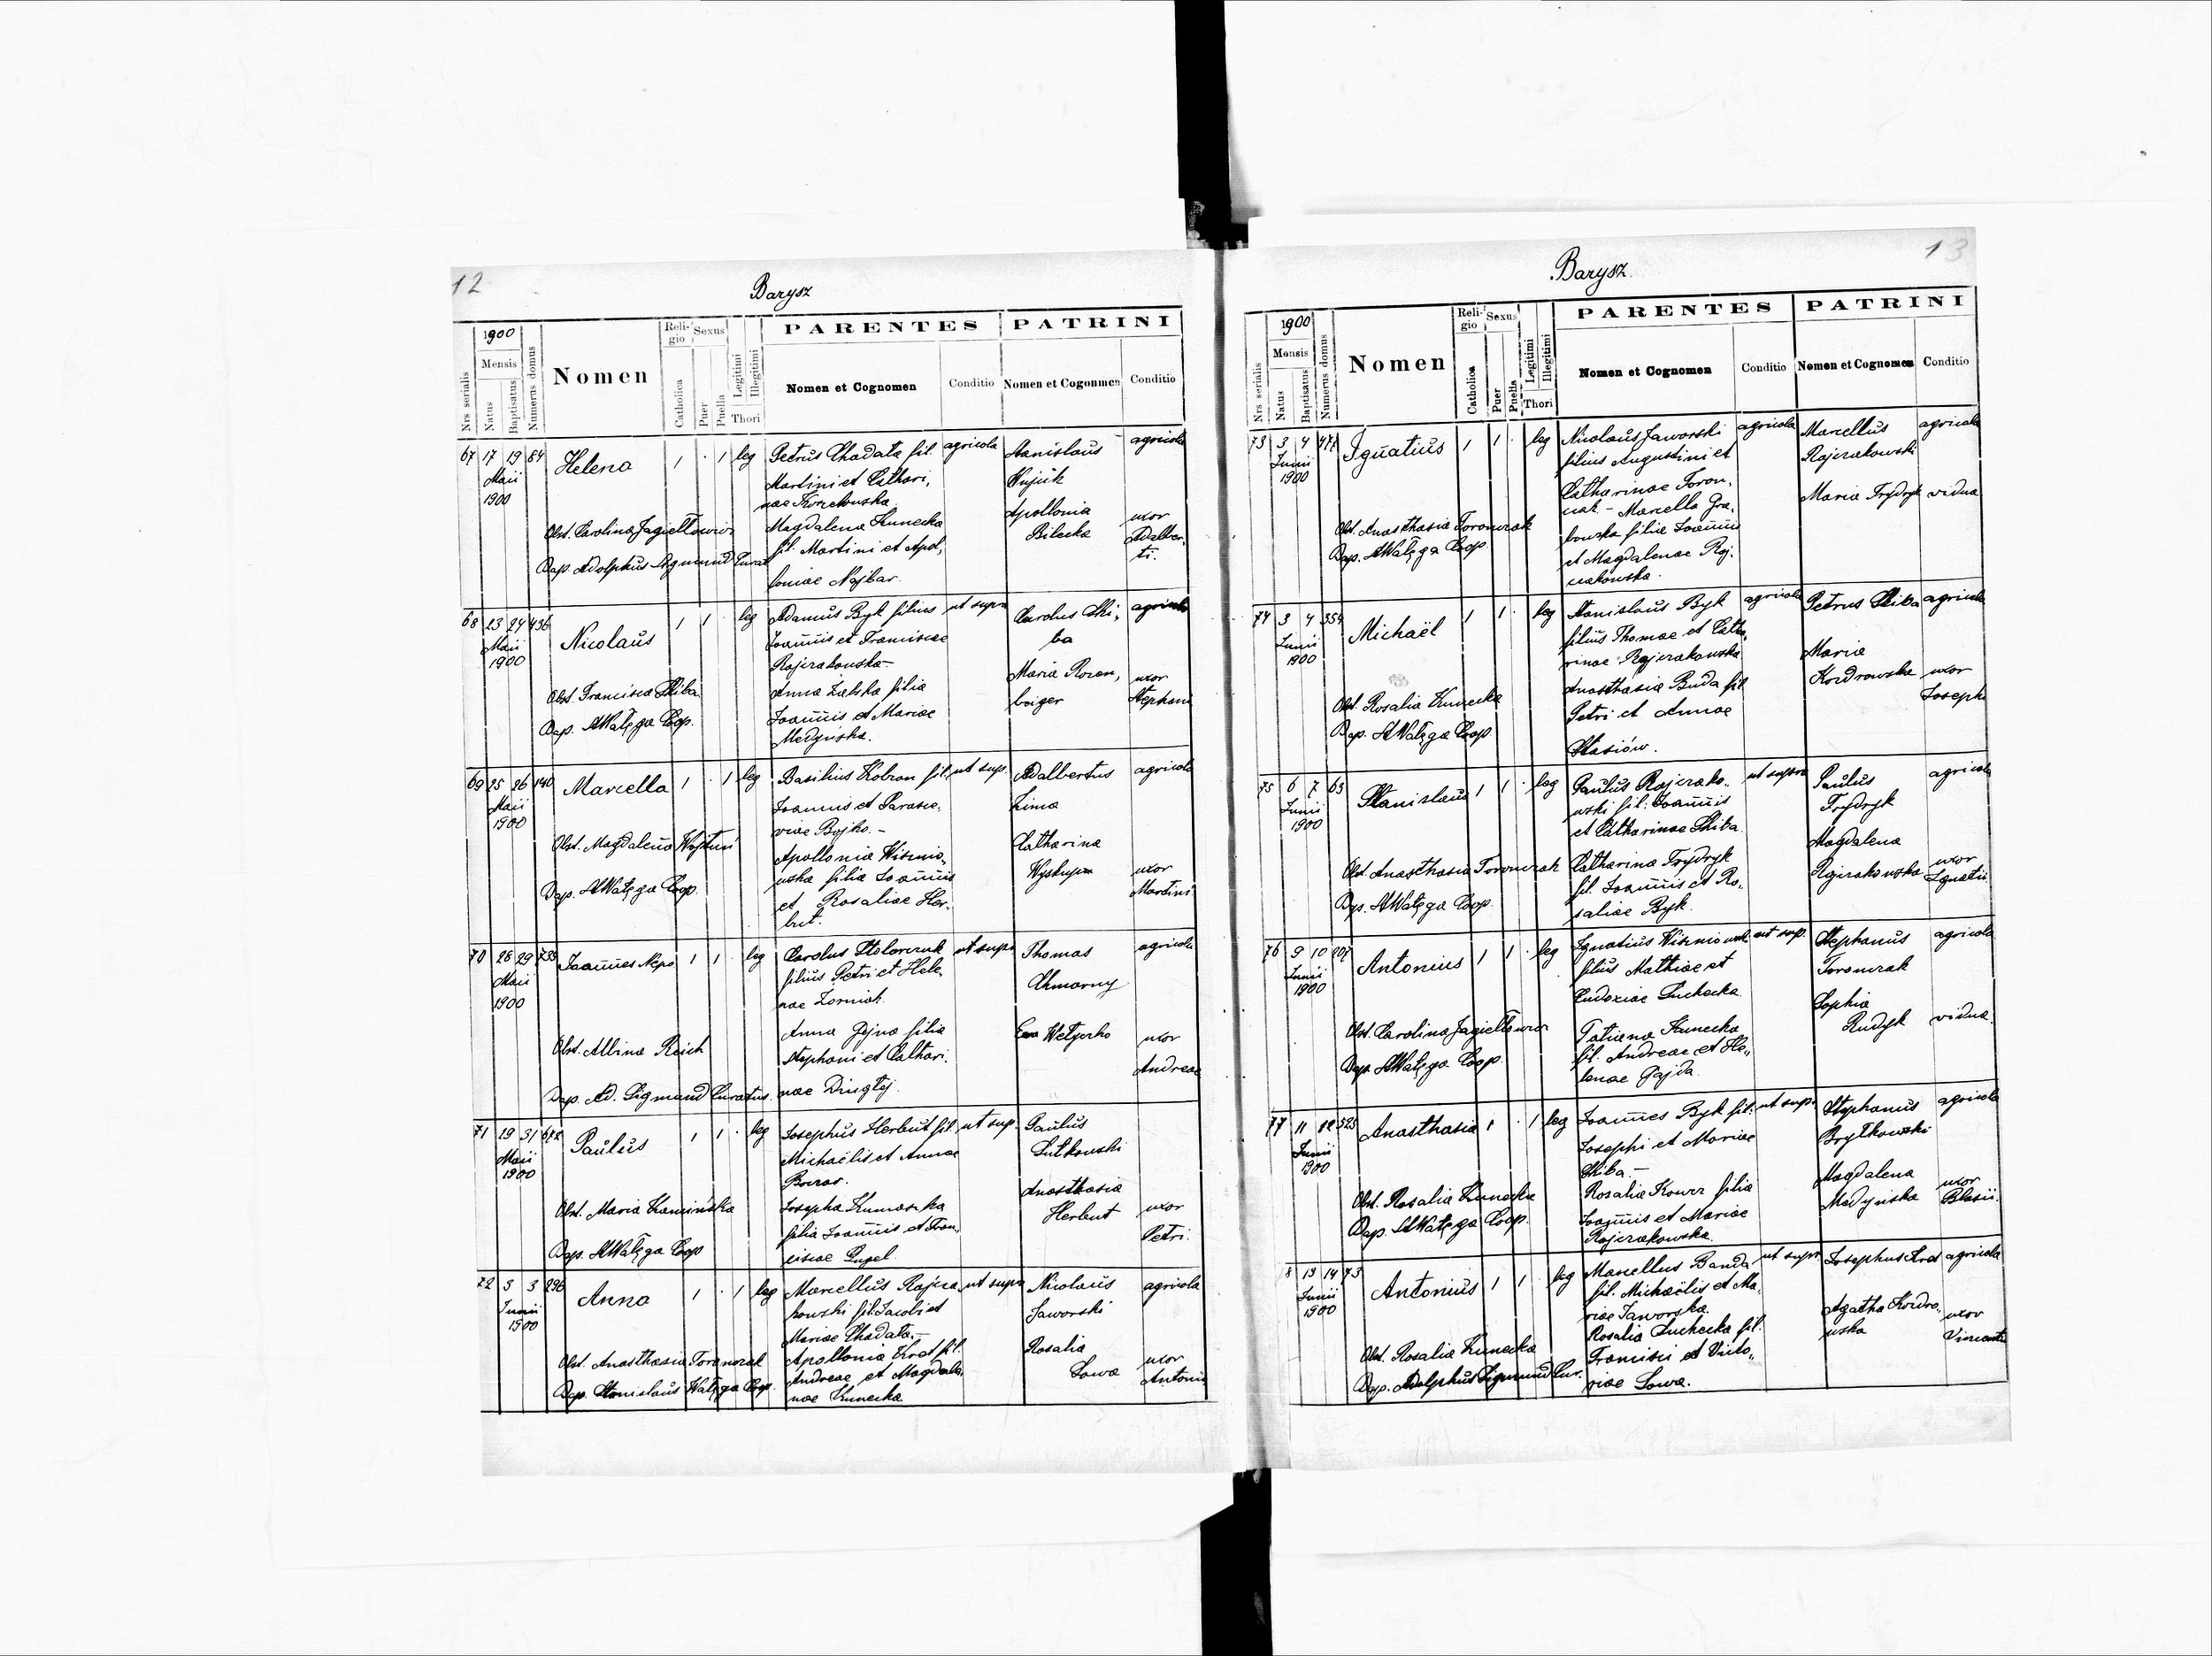 12
Barysz
1900
Mensis
Nrs serialis
Natus
Baptisatus
Numerus domus
Nomen
Religio
Catholica
Sexus
Puer
Puella
Legitimi
Illegitimi
Thori
PARENTES
Nomen et Cognomen
Conditio
PATRINI
Nomen et Cogonmen
Conditio
67 17 19 64
Maii
1900
Helena 1 . 1 leg
Obst. Carolina Jagiełłowicz
Bap. Adolphus Sigmund Curat
Petrus Chadata fil.
Martini et Cathari,
nae
Magdalena Kunecka
fil. Martini et Apol,
loniae Najbar.
agricola
Stanislaus
Wujcik
Apollonia
Bilecka
agricola
uxor
Adalber,
ti.
68 23 24 436
Maii
1900
Nicolaus 1 1 . leg
Obst. Francisca Skiba
Bap. StWałęga Coop.
Adamus Byk filius
Joannis et Franciscae
Rajczakowska -
Anna Zalska filia
Joannis et Mariae
Medyńska.
ut supra
Carolus Ski,
ba
Maria Rozen,
beiger
agricola
uxor
Stephani
69 25 26 140
Maii
1900
Marcella 1 . 1 leg
Obst. Magdalena
Bap. StWałęga Coop.
Basilius Kobzon fil.
Joannis et Parasce,
viae Bojko. -
Apollonia Wiśnio,
wska filia Joannis
et Rosaliae Her,
but.
ut sup.
Adalbertus
Zima
Catharina
Wyskup
agricola
uxor
Martini
70 28 29 733
Maii
1900
Joannes Nepo 1 1 . leg
Obst. Albina Reich
Bap. Ad. Sigmund Curatus.
Carolus Stolarczuk
filius Petri et Hele,
nae Zorniak
Anna Gejna filia
Stephani et Cathari,
nae
ut supra
Thomas
Chmarny
Eva
agricola
uxor
Andreae
71 29 31 672
Maii
1900
Paulus 1 1 . leg
Obst. Maria Kamińska
Bap. StWałęga Coop
Josephus Herbut fil.
Michaëlis et Annae
Josepha
filia Joannis et Fran,
ciscae
ut sup.
Paulus
Lutkowski
Anasthasia
Herbut
uxor
Petri.
72 3 3 296
Junii
1900
Anna 1 . 1 leg
Obst. Anasthasia Toronczak
Bap. Stanislaus Wałęga Coop.
Marcellus Rajcza,
kowski fil. Jacobi et
Mariae Chadata. -
Apollonia Krot fil.
Andreae et Magdale,
nae Kunecka.
ut supra
Nicolaus
Jaworski
Rosalia
Sowa
agricola
uxor
Antonii
13
Barysz.
1900
Mensis
Nrs serialis
Natus
Baptisatus
Numerus domus
Nomen
Religio
Catholica
Sexus
Puer
Puella
Legitimi
Illegitimi
Thori
PARENTES
Nomen et Cognomen
Conditio
PATRINI
Nomen et Cognomen
Conditio
73 3 4 477
Junii
1900
Ignatius 1 1 . leg
Obst. Anasthasia Toronczak
Bap. StWałęga Coop.
Nicolaus Jaworski
filius Augustini et
Catharinae Toron,
czak - Marcella Gra,
bowska filia Joannis
et Magdalenae Raj,
czakowska.
agricola
Marcellus
Rajczakowski
Maria Frydryk
agricola
vidua
74 3 4 354
Junii
1900
Michaël 1 1 . leg
Obst. Rosalia Kunecka
Bap. StWałęga Coop
Stanislaus Byk
filius Thomae et Catha,
rinae Rajczakowska
Anasthasia Buda fil.
Petri et Annae
Stasiów.
agricola
Petrus Skiba
Maria
Kordrowska
agricola
uxor
Josephi
75 6 7 63
Junii
1900
Stanislaus 1 1 . leg
Obst. Anasthasia Toronczak
Bap. StWałęga Coop.
Paulus Rajczako,
wski fil. Joannis
et Catharinae Skiba.
Catharina Frydryk
fil. Joannis et Ro,
saliae Byk.
ut supra
Paulus
Frydryk
Magdalena
Rajczakowska
agricola
uxor
Ignatii
76 9 10 207
Junii
1900
Antonius 1 1 . leg
Obst. Carolina Jagiełłowicz
Bap. StWałęga Coop.
Ignatius
filius Mathiae et
Eudoxiae Suchecka.
Tatiana Kunecka
fil. Andreae et He,
lenae Gajda.
ut sup.
Stephanus
Toronczak
Sophia
Rudyk
agricola
vidua.
77 11 12 323
Junii
1900
Anasthasia 1 . 1 leg
Obst. Rosalia Kunecka
Bap. StWałęga Coop.
Joannes Byk fil.
Josephi et Mariae
Skiba -
Rosalia Kowcz filia
Joannis et Mariae
Rajczakowska.
ut sup.
Stephanus
Brytkowski
Magdalena
Medyńska
agricola
uxor
Blasii.
8 13 14 73
Junii
1900
Antonius 1 1 . leg
Obst. Rosalia Kunecka
Bap. Adolphus Sigmund Cur.
Marcellus Banda
fil. Michaëlis et Ma,
riae Jaworska.
Rosalia Suchecka fil.
Francisci et Victo,
riae Sowa.
ut supr
Josephus Krot
Agatha Kordro,
wska
agricola
uxor
Vincentii